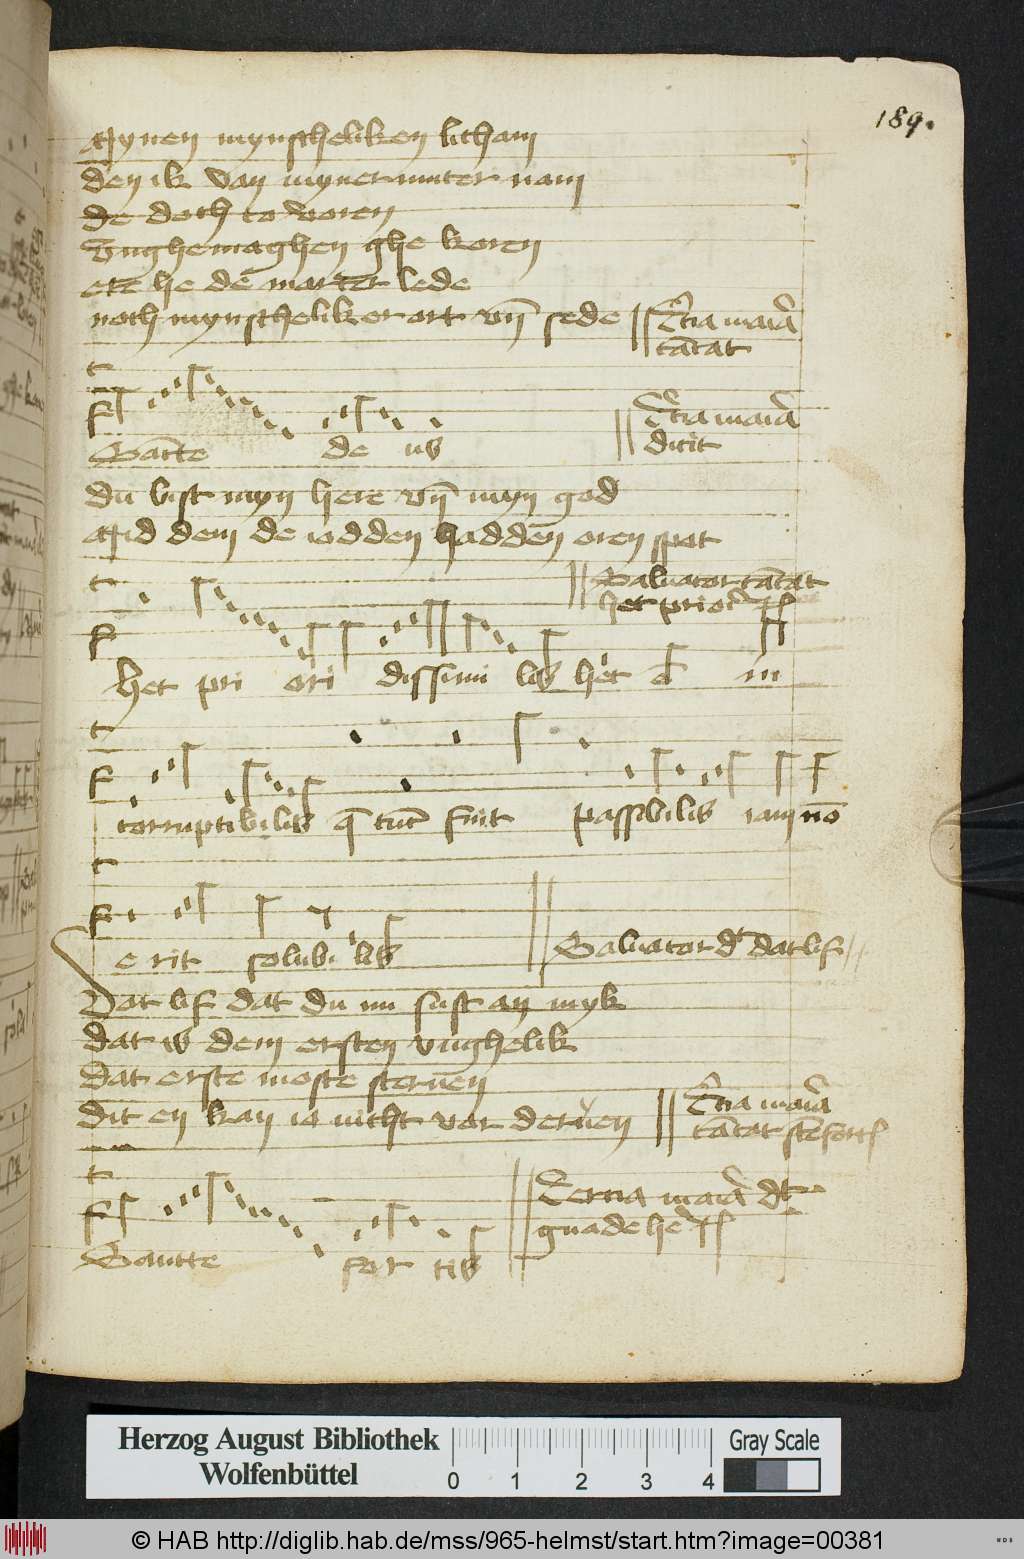 189.
Mynen mynscheliken licham
den ik van myner muter nam
de doch to voren
vnghemaghen ghe koren
ere he de marter lede
noch mynscheliker art vn̄ sede
Tercia maria
cantat
c
F
Sancte de us
Tercia maria
dicit
du bist myn here vn̄ myn god
Mid dem de iodden hadden oren spot
c
F
Saluator cantat
hec priori
hec pri ori dissimi lis hec est in
c
F
corruptibilis que tunc fuit passibilis iam non
c
F
erit solubi lis
Saluator dt dat lif
Dat lif dat du nu sust an myk
dat is dem ersten vnghelik
dat erste moste steruen
dit en kan io nicht vor deruen
Tercia maria
cantat sancte fortis
c
F
Sancte for tis
Tercia maria dt
gnade here
Herzog August Bibliothek
Wolfenbüttel
0 1 2 3 4
Gray Scale
© HAB http://diglib.hab.de/mss/965-helmst/start.htm?image=00381